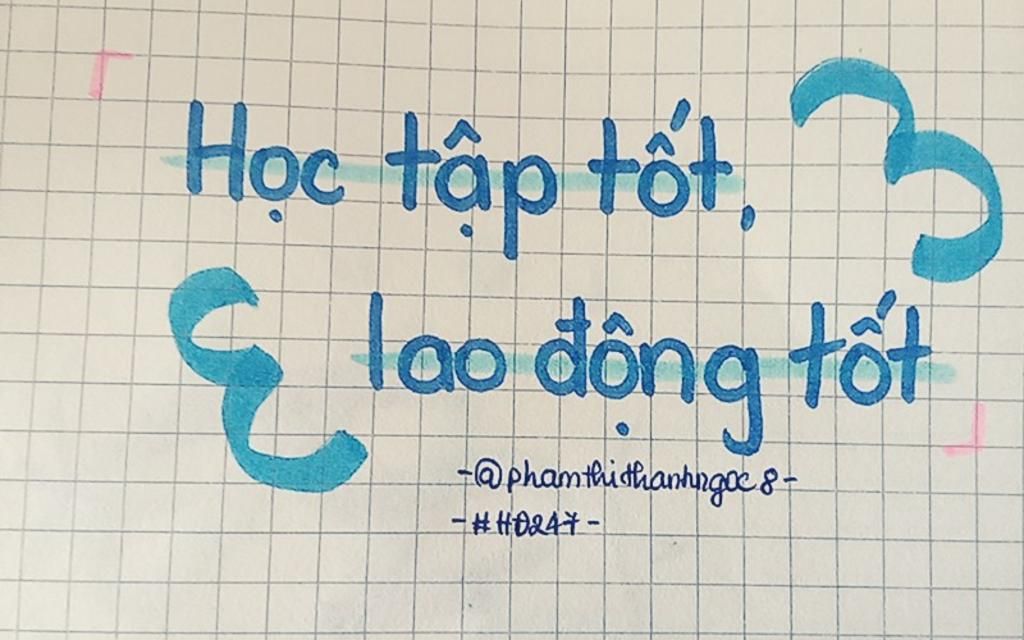 Học tập tốt,
lao động tốt
-@phamthithanhngoc8-
-#HĐ247-